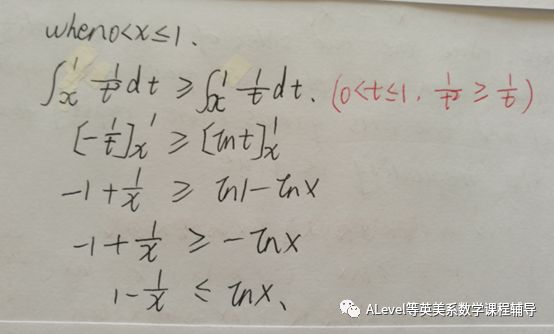 when 0<x≤1.
∫ₓ¹ 1/t² dt ≥ ∫ₓ¹ 1/t dt. (0<t≤1. 1/t² ≥ 1/t)
[-1/t]ₓ¹ ≥ [ln t]ₓ¹
-1 + 1/x ≥ ln1 - lnx
-1 + 1/x ≥ -lnx
1 - 1/x ≤ lnx.
ALevel等英美系数学课程辅导